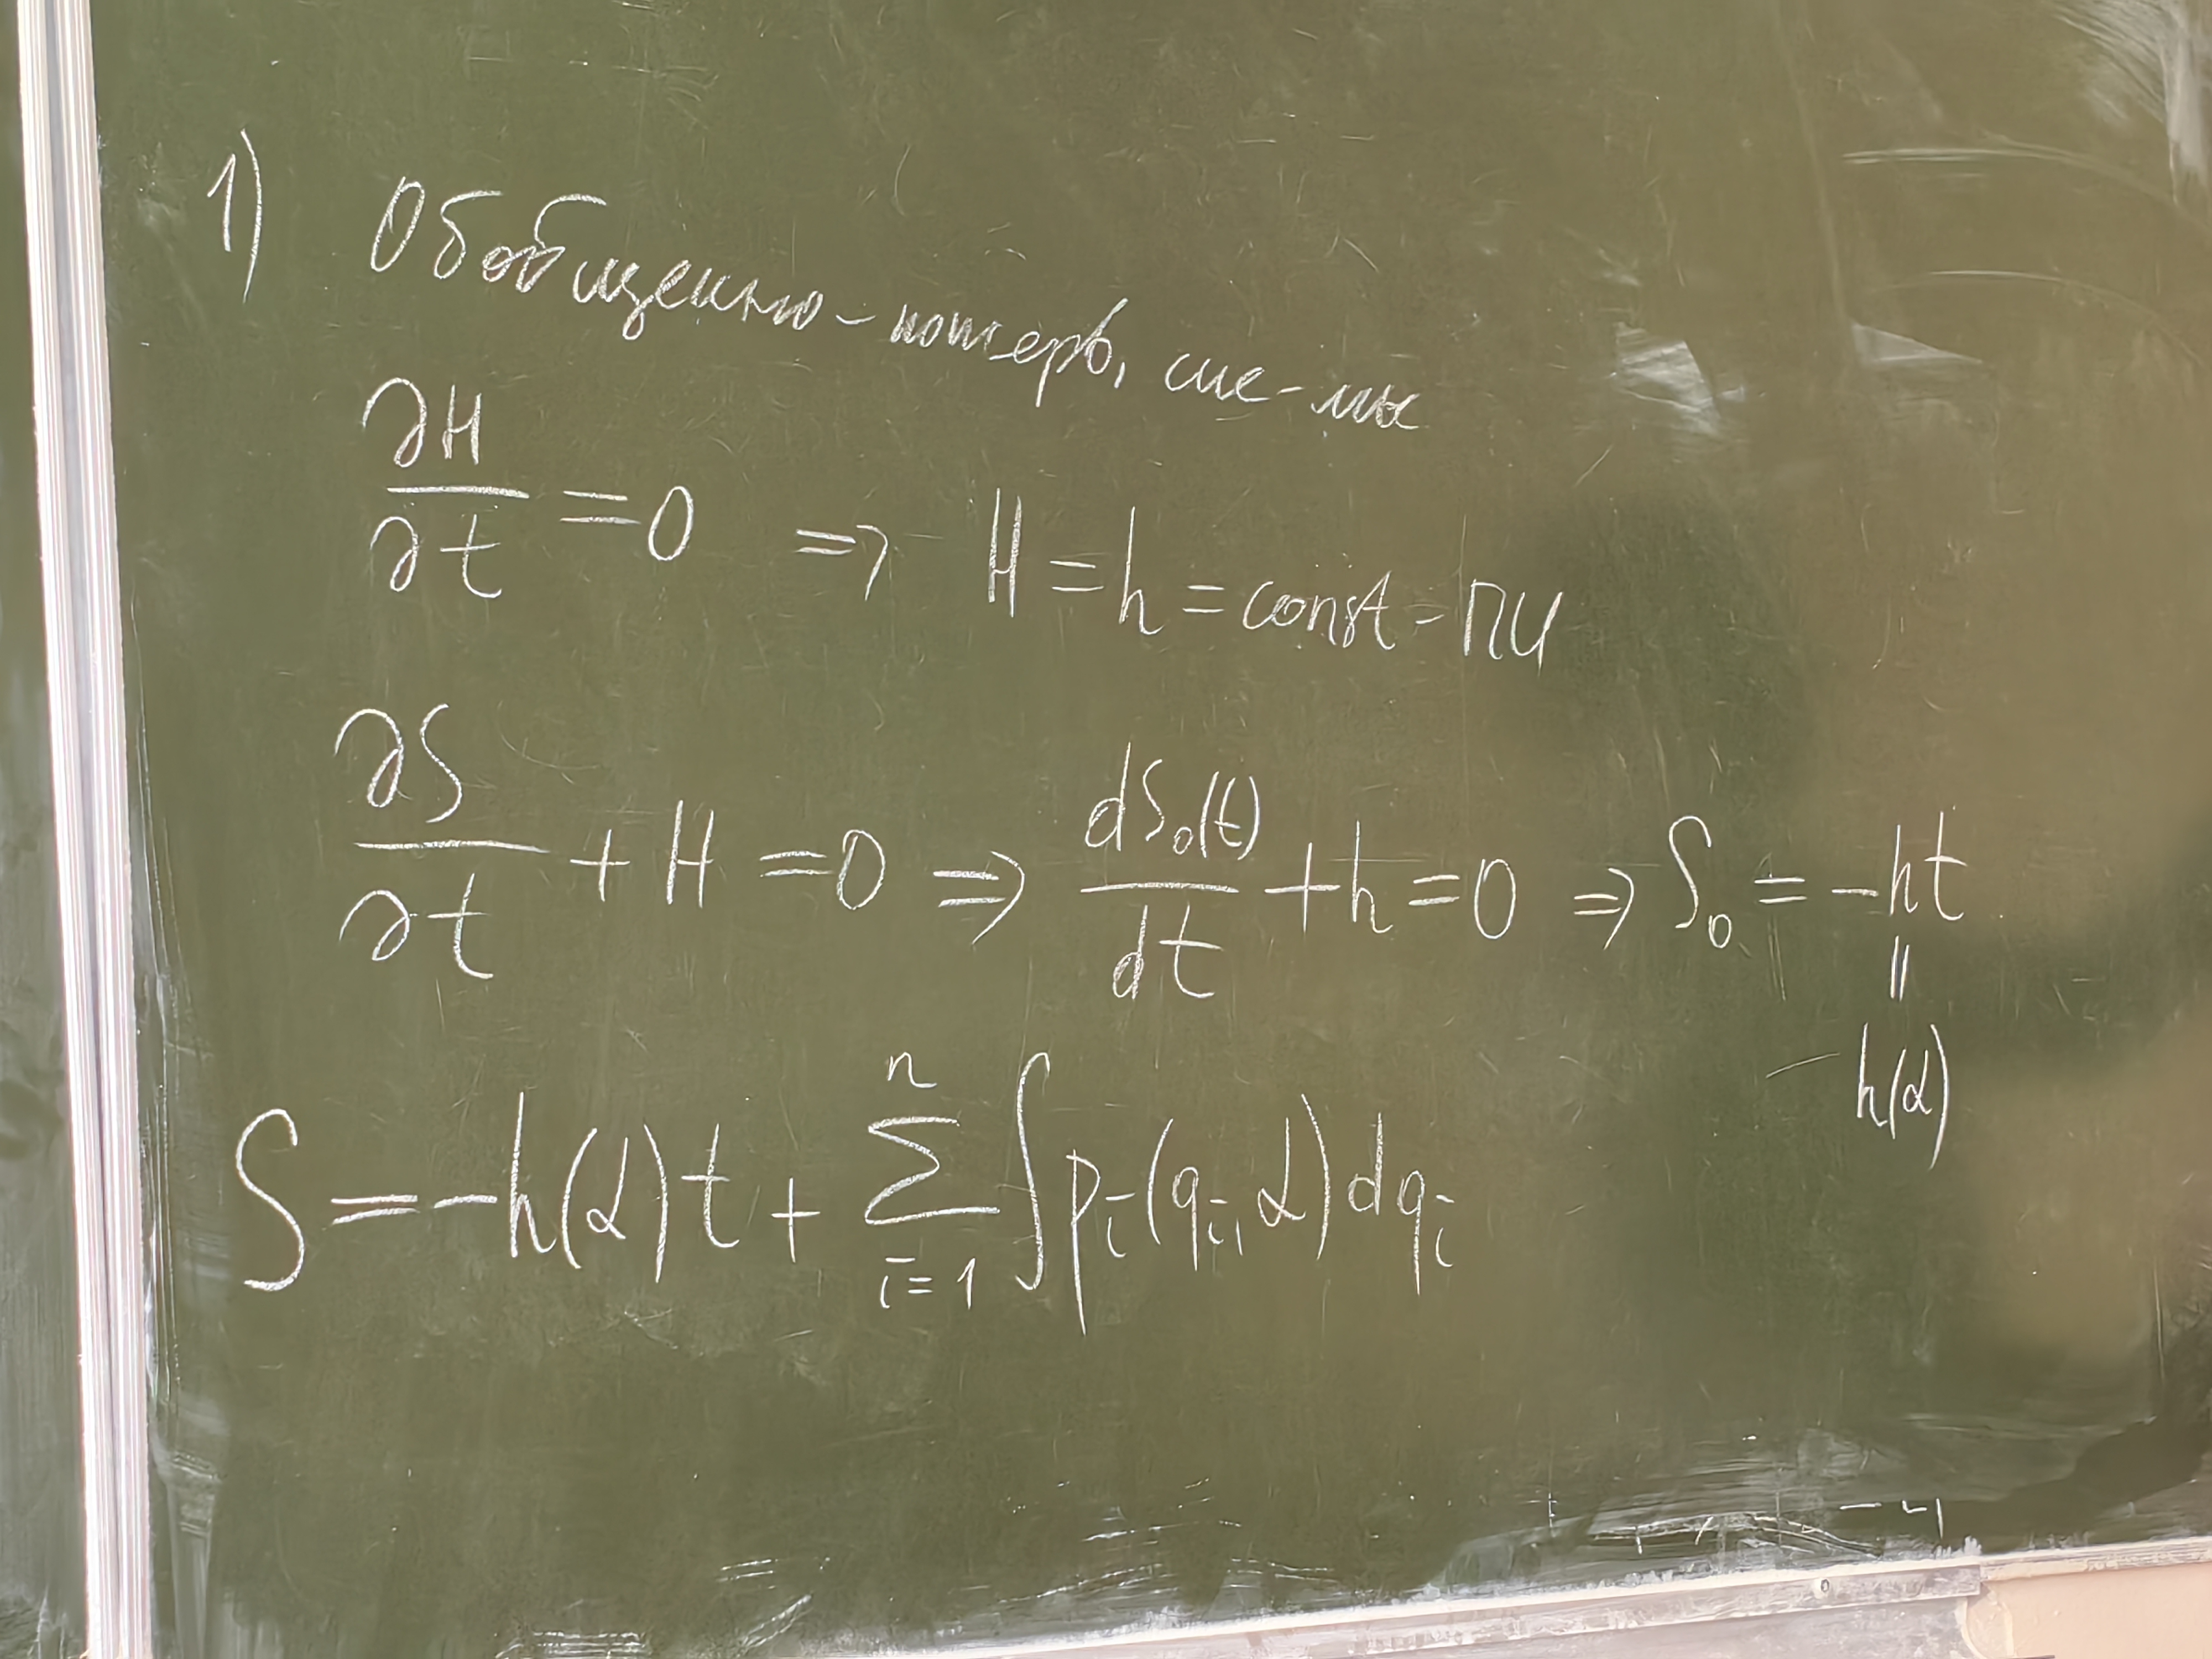 1) Обобщенно-консерв. сис-мы
∂H/∂t = 0 ⇒ H = h = const - ПИ
∂S/∂t + H = 0 ⇒ dS₀(t)/dt + h = 0 ⇒ S₀ = -ht
||
h(α)
S = -h(α)t + ∑_{i=1}^{n} ∫ p_i(q_i, α) dq_i